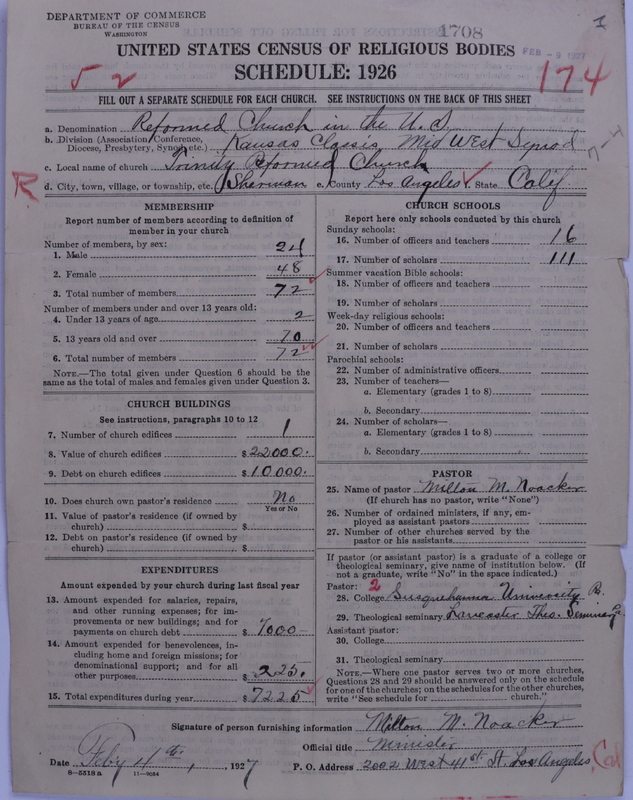 DEPARTMENT OF COMMERCE
BUREAU OF THE CENSUS
WASHINGTON
1708
1
FEB - 9 1927
UNITED STATES CENSUS OF RELIGIOUS BODIES
SCHEDULE: 1926
52
174
FILL OUT A SEPARATE SCHEDULE FOR EACH CHURCH. SEE INSTRUCTIONS ON THE BACK OF THIS SHEET
a. Denomination Reformed Church in the U.S.
b. Division (Association, Conference, Diocese, Presbytery, Synod, etc.) Kansas Classis, Mid West Synod
7-4
c. Local name of church Trinity Reformed Church
R
d. City, town, village, or township, etc. Sherman e. County Los Angeles f. State Calif
MEMBERSHIP
Report number of members according to definition of
member in your church
Number of members, by sex:
1. Male 24
2. Female 48
3. Total number of members 72
Number of members under and over 13 years old:
4. Under 13 years of age 2
5. 13 years old and over 70
6. Total number of members 72
NOTE.—The total given under Question 6 should be the
same as the total of males and females given under Question 3.
CHURCH BUILDINGS
See instructions, paragraphs 10 to 12
7. Number of church edifices 1
8. Value of church edifices $22000.
9. Debt on church edifices $10,000.
10. Does church own pastor's residence No
Yes or No
11. Value of pastor's residence (if owned by
church) $
12. Debt on pastor's residence (if owned by
church) $
EXPENDITURES
Amount expended by your church during last fiscal year
13. Amount expended for salaries, repairs,
and other running expenses; for im-
provements or new buildings; and for
payments on church debt $7000
14. Amount expended for benevolences, in-
cluding home and foreign missions; for
denominational support; and for all
other purposes $225.
15. Total expenditures during year $7225
CHURCH SCHOOLS
Report here only schools conducted by this church
Sunday schools:
16. Number of officers and teachers 16
17. Number of scholars 111
Summer vacation Bible schools:
18. Number of officers and teachers
19. Number of scholars
Week-day religious schools:
20. Number of officers and teachers
21. Number of scholars
Parochial schools:
22. Number of administrative officers
23. Number of teachers—
a. Elementary (grades 1 to 8)
b. Secondary
24. Number of scholars—
a. Elementary (grades 1 to 8)
b. Secondary
PASTOR
25. Name of pastor Milton M. Noacker
(If church has no pastor, write "None")
26. Number of ordained ministers, if any, em-
ployed as assistant pastors
27. Number of other churches served by the
pastor or his assistants
If pastor (or assistant pastor) is a graduate of a college or
theological seminary, give name of institution below. (If
not a graduate, write "No" in the space indicated.)
Pastor: 2
28. College Susquehanna University Pa.
29. Theological seminary Lancaster Theo. Seminary
Assistant pastor:
30. College
31. Theological seminary
NOTE.—Where one pastor serves two or more churches,
Questions 28 and 29 should be answered only on the schedule
for one of the churches; on the schedules for the other churches,
write "See schedule for church."
Signature of person furnishing information Milton M. Noacker
Official title Minister
Date Feby 4th, 1927 P. O. Address 2002 West 41st St. Los Angeles, Cal
8-5518a 11-9084